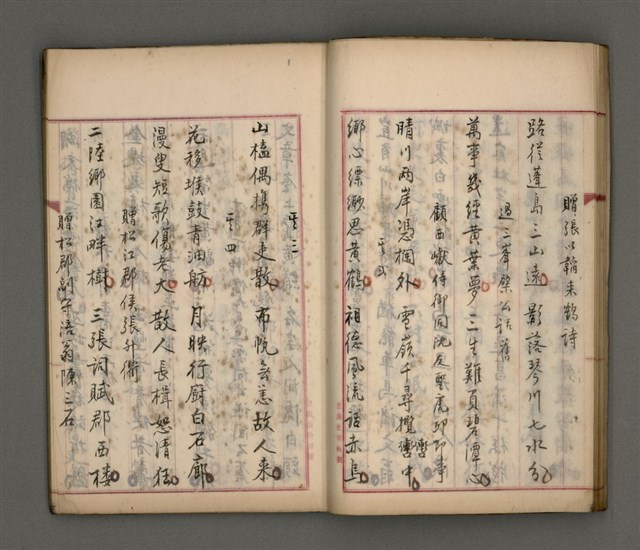 贈張以韜來鶴詩
路從蓬島三山遠 影落琴川七水分
過三峯檗公話舊
萬事幾經黃葉夢 三生難負碧潭心
顧西巘侍御同沈友聖虎邱即事
晴川兩岸憑欄外 雪嶺千尋攬轡中
其二
鄉心縹緲思黃鶴 祖德風流話赤烏
其三
山榼偶攜群吏散 布帆無恙故人來
其四
花移堠鼓青油舫 月映行廚白石廊
漫叟短歌傷老大 散人長楫恕清狂
贈松江郡侯張升衢
二陸鄉園江畔樹 三張詞賦郡西樓
贈松郡副守浯翁陳三石